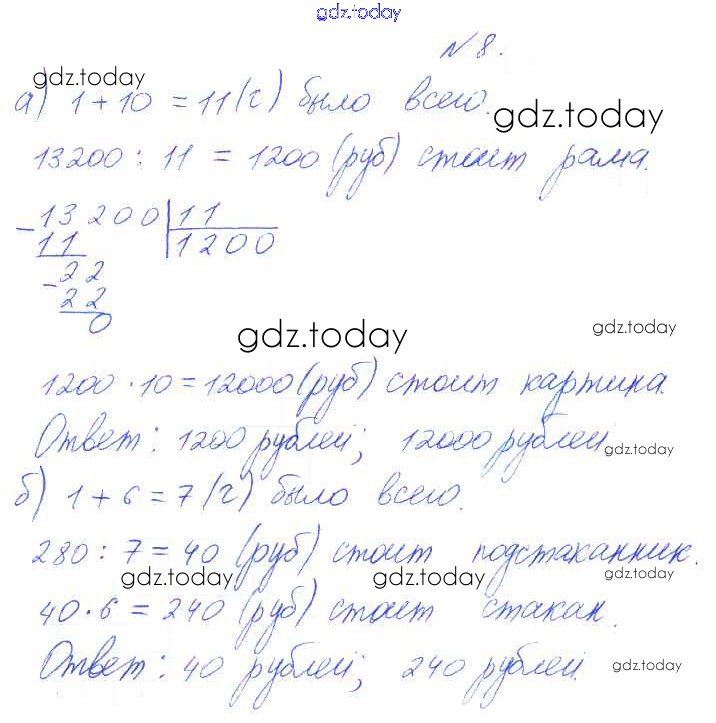 gdz.today
№ 8.
gdz.today
а) 1 + 10 = 11 (ч) было всего.
gdz.today
13200 : 11 = 1200 (руб) стоит рама.
- 13200 | 11
11 | 1200
- 22
22
0
gdz.today
gdz.today
1200 · 10 = 12000 (руб) стоит картина.
Ответ: 1200 рублей; 12000 рублей.
gdz.today
б) 1 + 6 = 7 (ч) было всего.
280 : 7 = 40 (руб) стоит подстаканник.
gdz.today gdz.today gdz.today
40 · 6 = 240 (руб) стоит стакан.
Ответ: 40 рублей; 240 рублей.
gdz.today